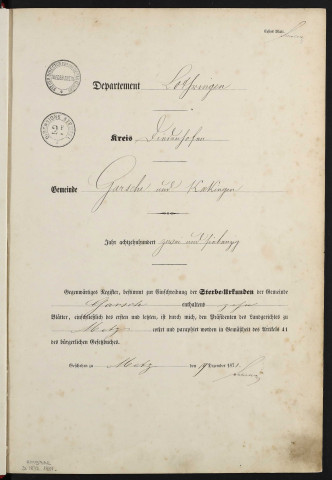 Erstes Blatt.
Departement Lothringen
Kreis Diedenhofen
Gemeinde Garsch und Kökingen
Jahr achtzehnhundert zwei und siebenzig
Gegenwärtiges Register, bestimmt zur Einschreibung der Sterbe-Urkunden der Gemeinde
Garsch enthaltend zehn
Blätter, einschließlich des ersten und letzten, ist durch mich, den Präsidenten des Landgerichtes zu
Metz cotirt und paraphirt worden in Gemäßheit des Artikels 41
des bürgerlichen Gesetzbuches.
Geschehen zu Metz den Dezember 1871.